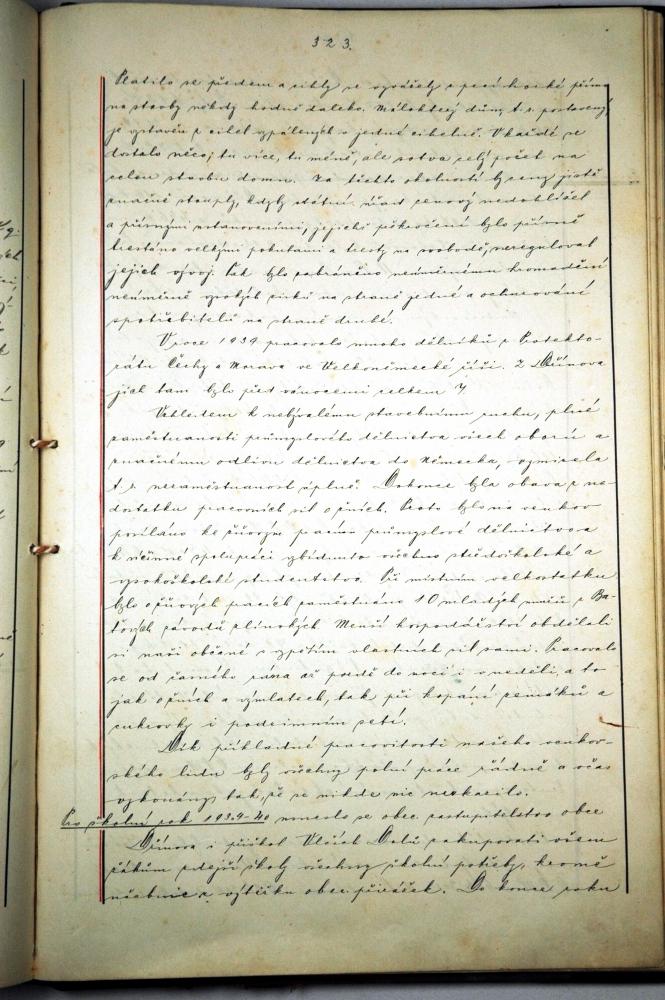 323.
Platilo se předem a cihly se vyvážely z pecí horké přímo
na stavby někdy hodně daleko. Málokterý dům, t. r. postavený,
je vystavěn z cihel vypálených v jedné cihelně. V každé se
dostalo něco, tu více, tu méně, ale sotva celý počet na
celou stavbu domu. Za těchto okolností by ceny jistě
značně stouply, kdyby státní úřad cenový nedohlížel
a přísnými ustanoveními, jejichž překročení bylo přísně
trestáno velkými pokutami a tresty na svobodě, nereguloval
jejich vývoj. Tak bylo zabráněno neúměrnému hromadění
neúměrně vysokých zisků na straně jedné a ochuzování
spotřebitelů na straně druhé.
V roce 1939 pracovalo mnoho dělníků z Protekto-
rátu Čechy a Morava ve Velkoněmecké říši. Z Dřínova
jich tam bylo před vánocemi celkem 7.
Vzhledem k nebývalému stavebnímu ruchu, plné
zaměstnanosti průmyslového dělnictva všech oborů a
značnému odlivu dělnictva do Německa, vymizela
t. r. nezaměstnanost úplně. Dokonce byla obava z ne-
dostatku pracovních sil o žních. Proto bylo na venkov
posíláno ke žňovým pracím průmyslové dělnictvo a
k účinné spolupráci vybídnuto všechno středoškolské a
vysokoškolské studentstvo. Při místním velkostatku
bylo o žňových pracích zaměstnáno 10 mladých mužů z Ba-
ťových závodů zlínských. Menší hospodářství obdělali
si naši občané s vypětím vlastních sil sami. Pracovalo
se od časného rána až pozdě do noci i v neděli, a to
jak o žních a výmlatech, tak při kopání zemáků a
cukrovky i podzimním setí.
Dík příkladné pracovitosti našeho venkov-
ského lidu byly všechny polní práce řádně a včas
vykonány, tak, že se nikde nic nezkazilo.
Pro školní rok 1939-40 usneslo se obec. zastupitelstvo obce
Dřínova i přiškol. Vlčích Dolů zakupovati všem
žákům zdejší školy všechny školní potřeby, kromě
učebnic z výtěžku obec. přirážek. Do konce roku